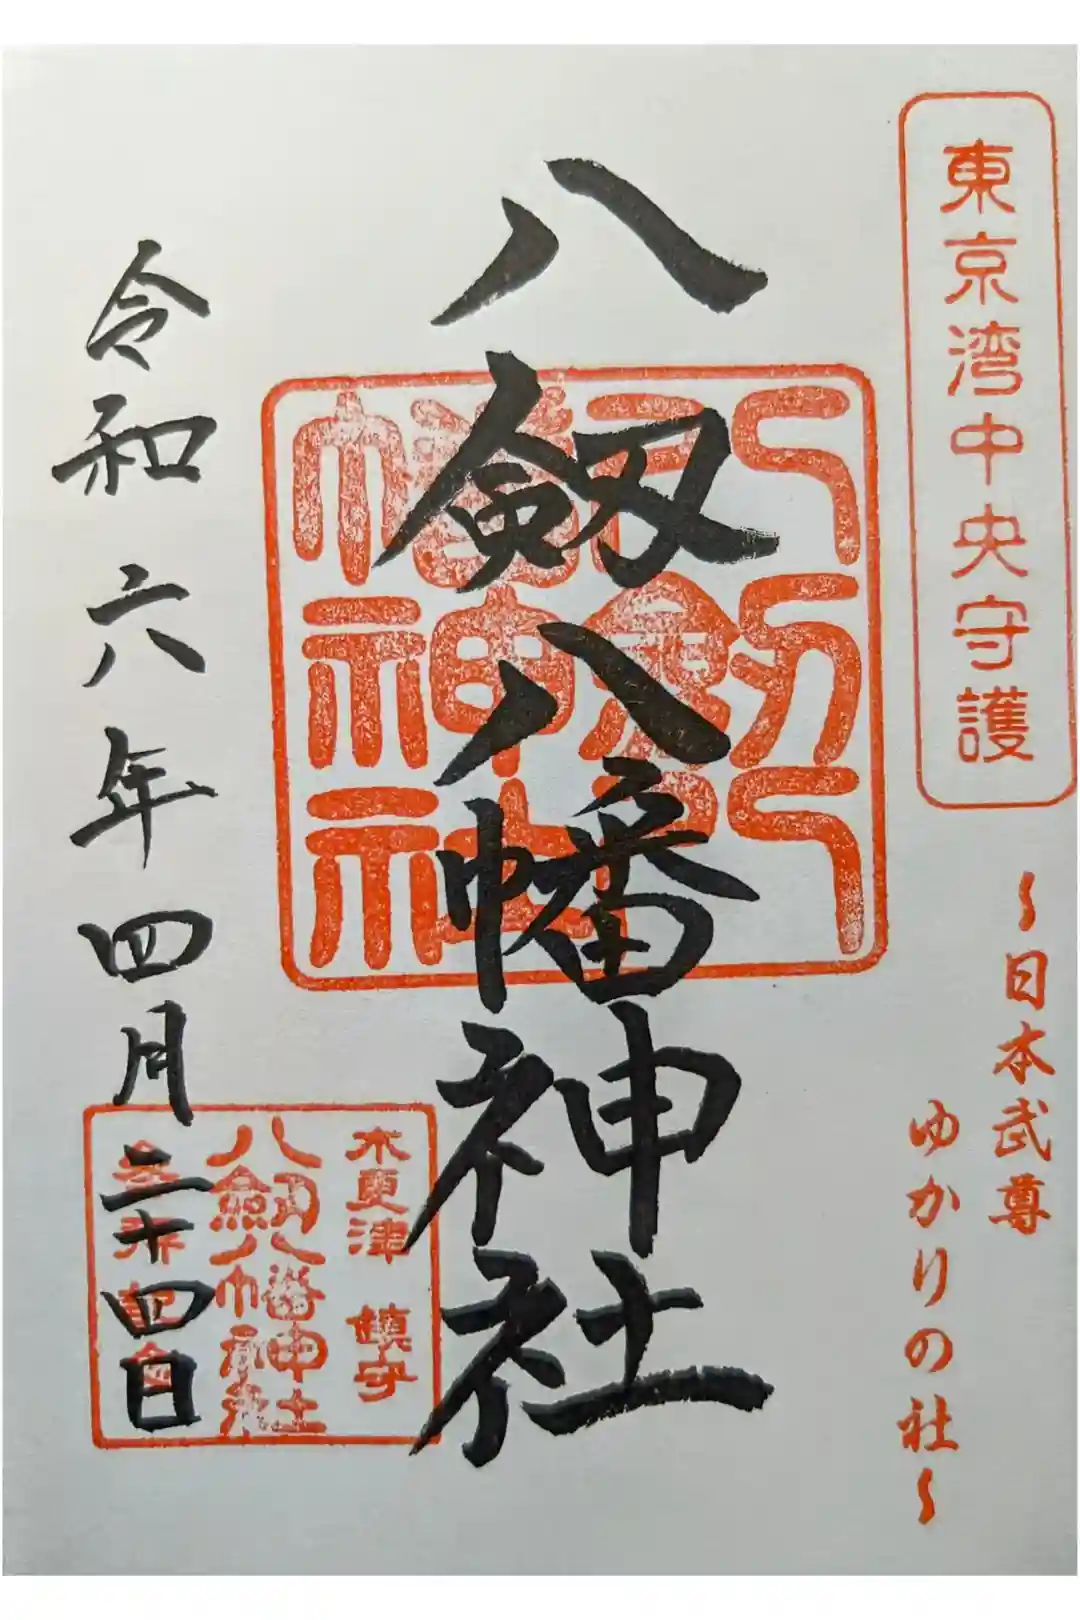 東京湾中央守護
～日本武尊
ゆかりの社～
八剱八幡神社
八剱八幡神社
木更津 鎮守
八剱八幡神社
令和六年四月二十四日